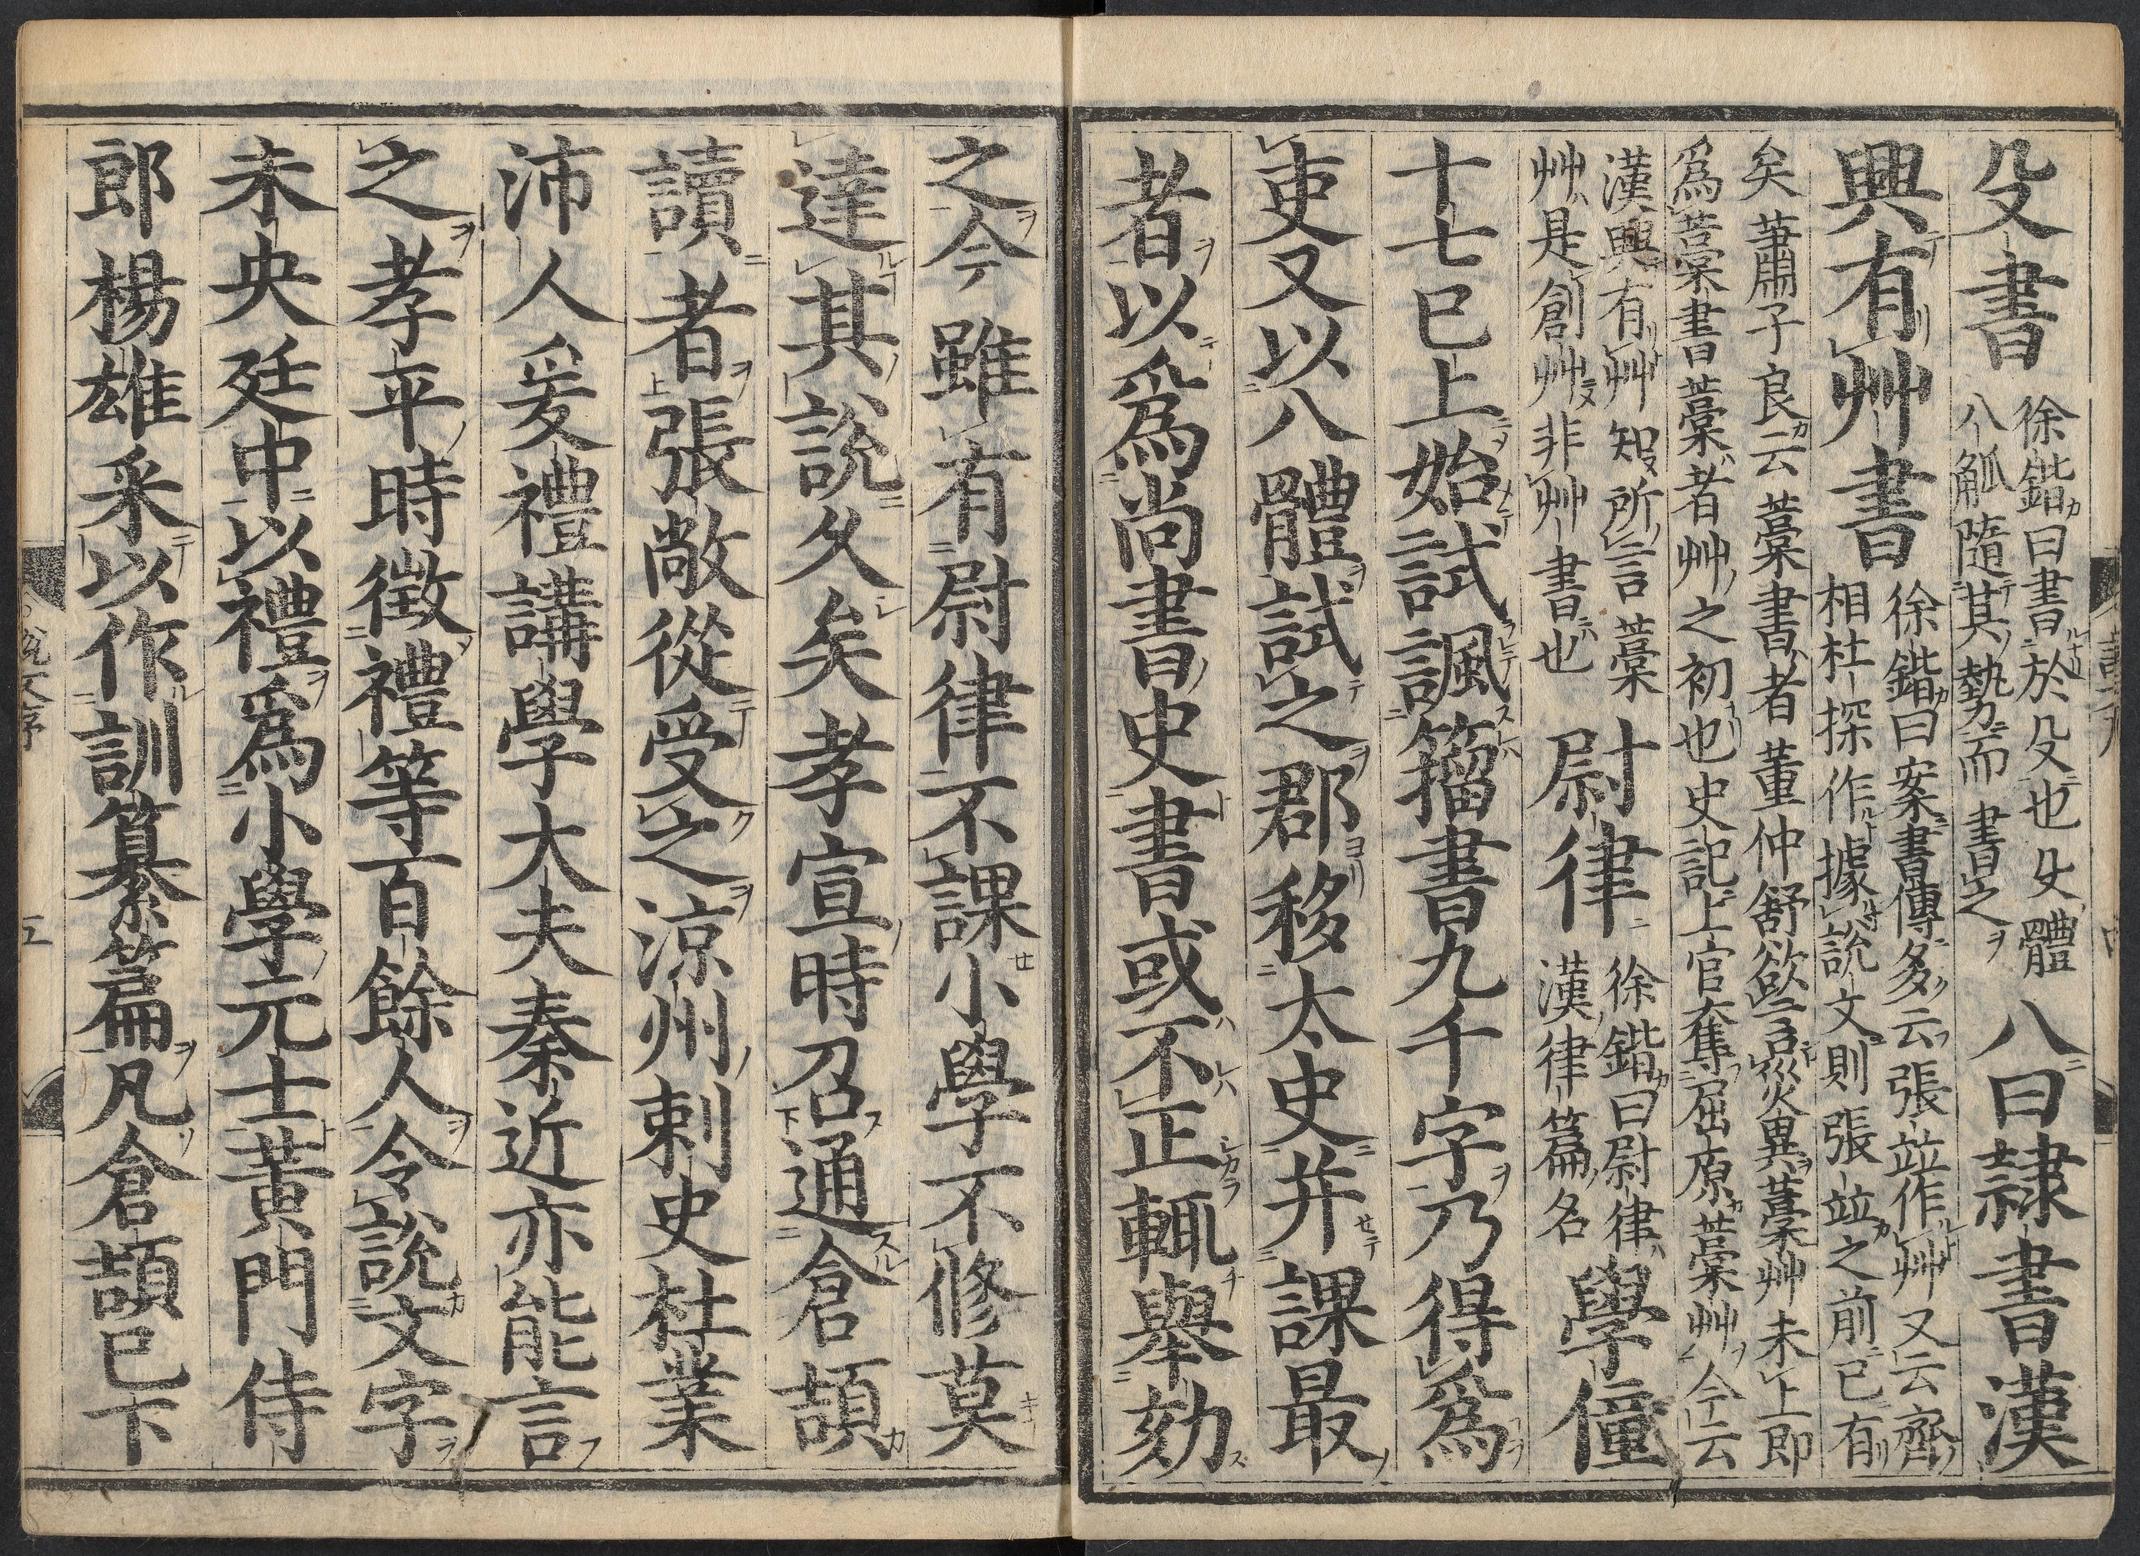 殳書徐鍇曰書於殳也殳體八觚隨其勢而書之八曰隷書漢
興有艸書徐鍇曰案書傳多云張竝作艸又云齊相杜探作據說文則張竝之前已有
矣蕭子良云藁書者董仲舒欲言災異藁艸未上即爲藁書藁者艸之初也史記上官奪屈原藁艸今云
漢興有艸知所言藁艸是創艸非艸書也尉律徐鍇曰尉律漢律篇名學僮
十七已上始試諷籀書九千字乃得爲
吏又以八體試之郡移太史并課最
者以爲尚書史書或不正輒舉劾
之今雖有尉律不課小學不修莫
達其說久矣孝宣時召通倉頡
讀者張敞從受之涼州刺史杜業
沛人爰禮講學大夫秦近亦能言
之孝平時徵禮等百餘人令說文字
未央廷中以禮爲小學元士黄門侍
郎楊雄采以作訓纂篇凡倉頡已下
說文序
五